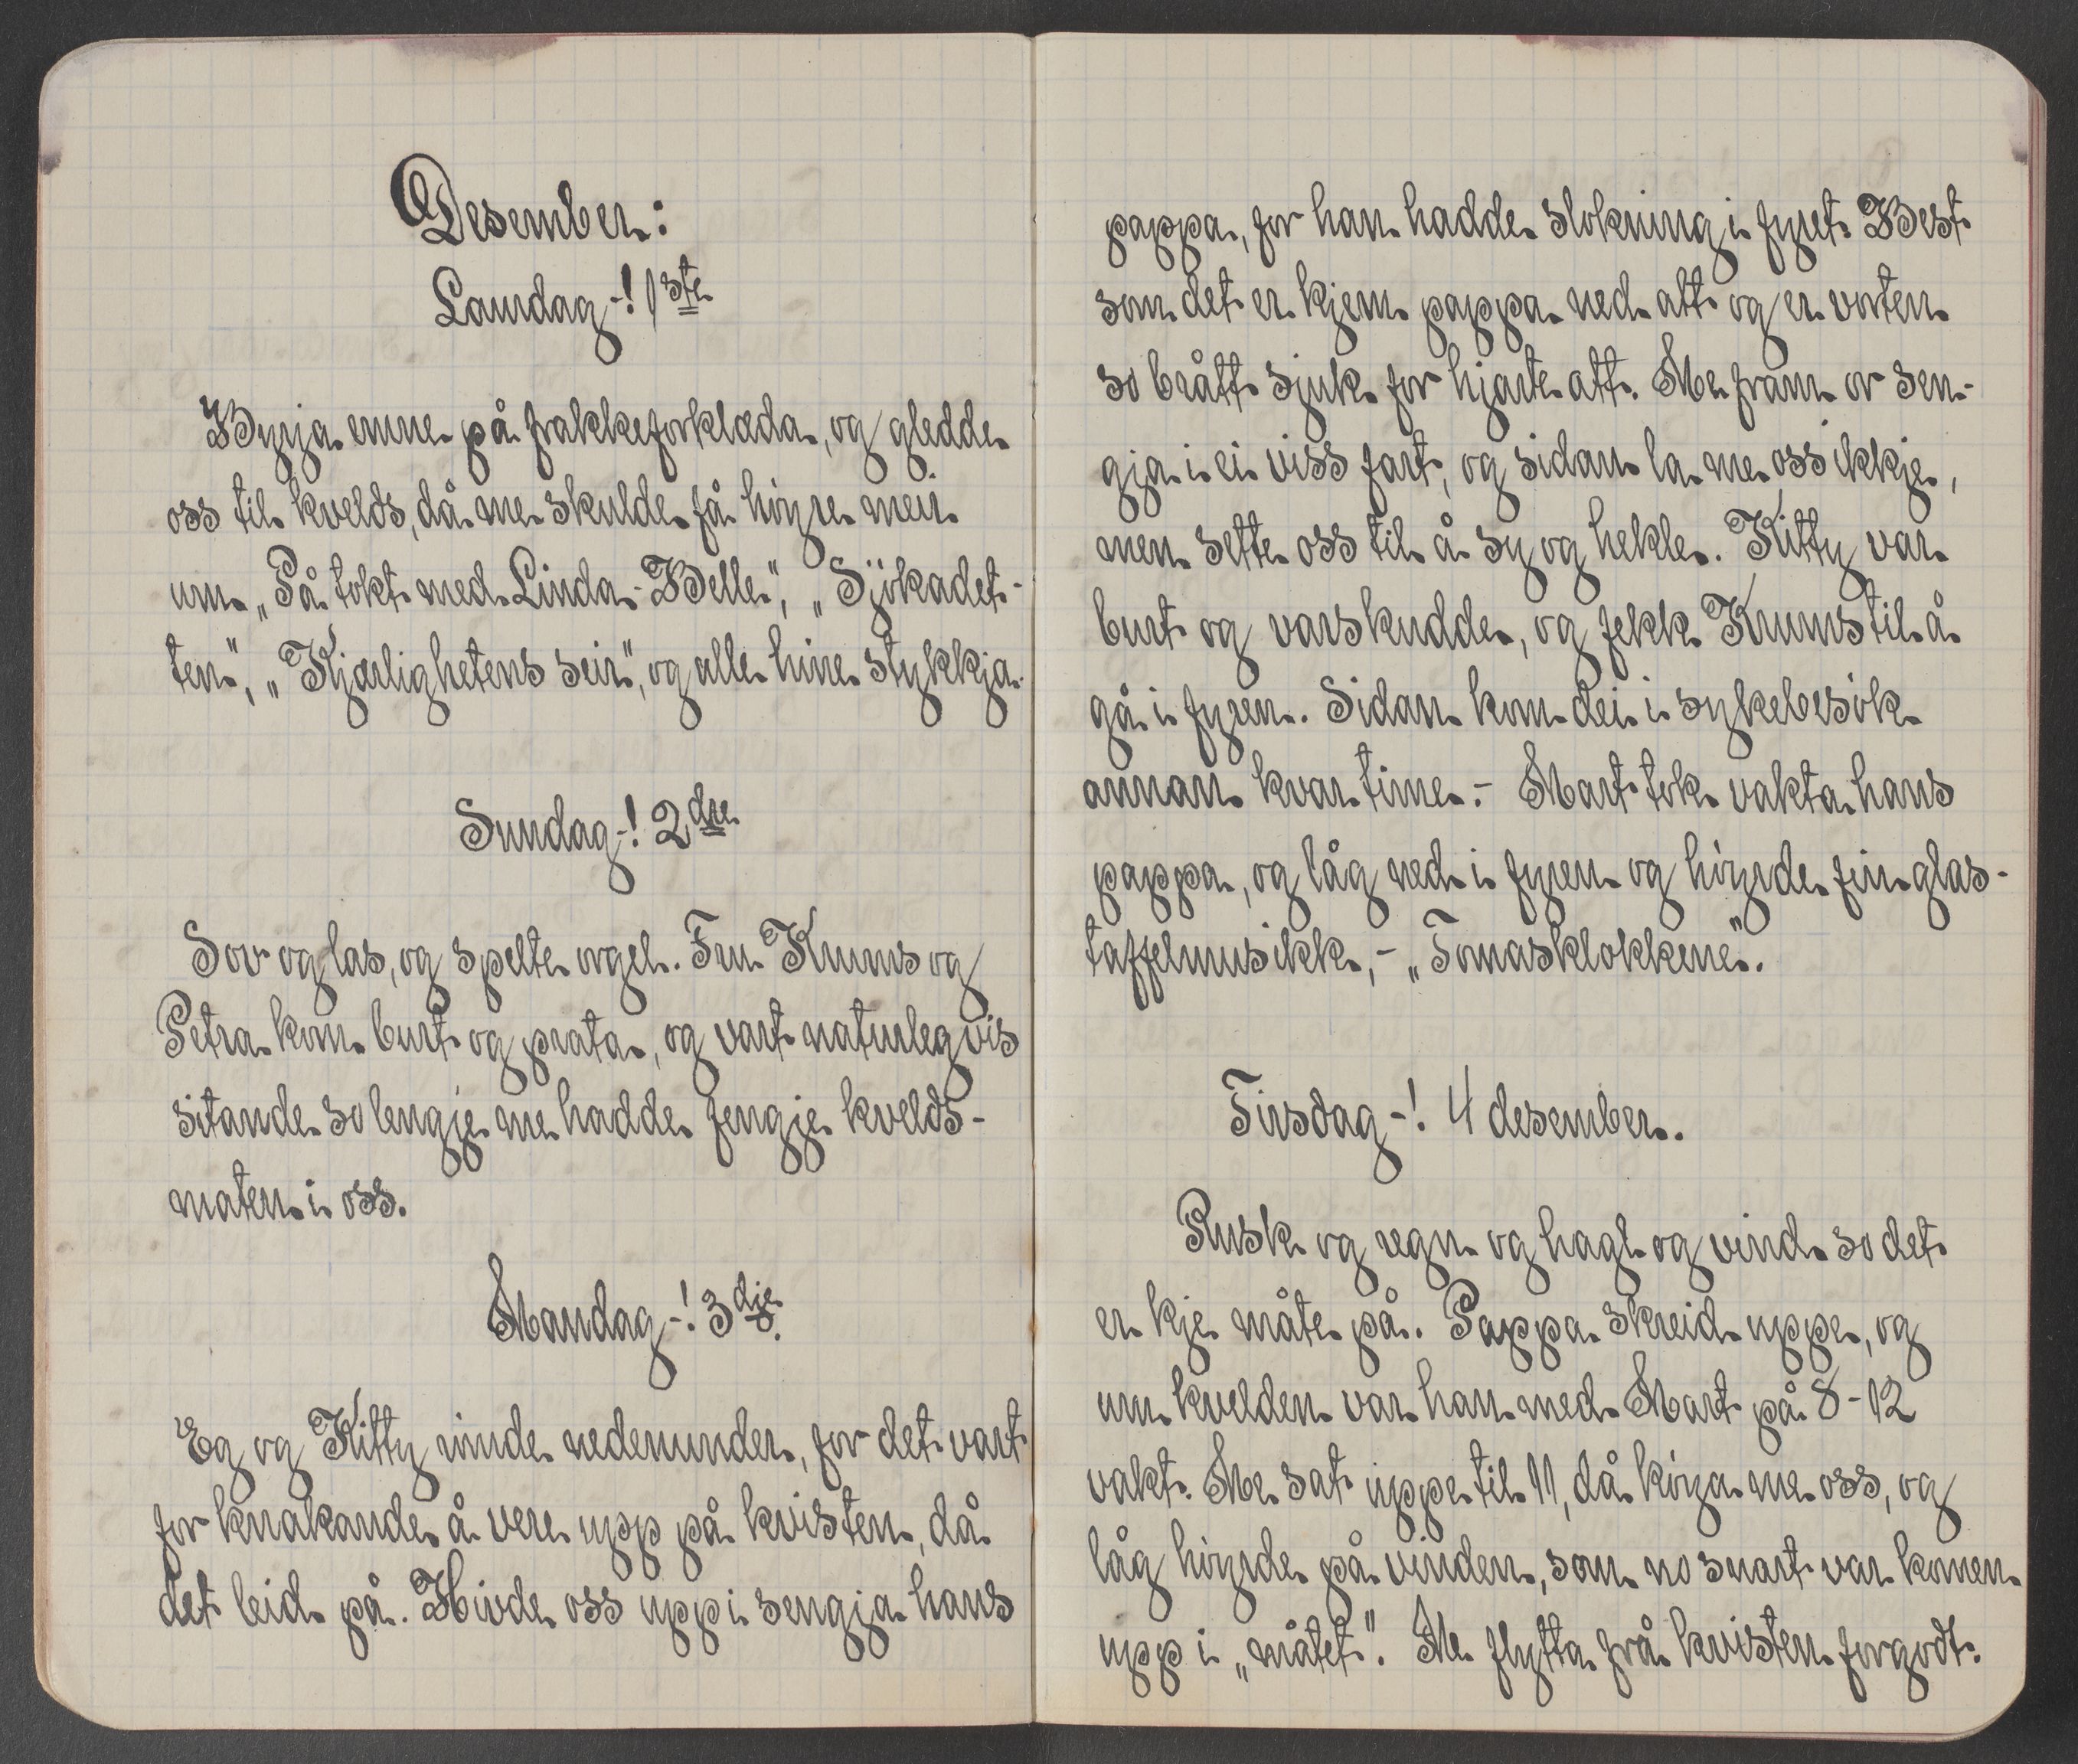 Desember:
Laurdag-! 1ste
Byrja emne på frakkeforklæda, og gledde
oss til kvelds, då me skulde få höyre meir
um „På tokt med Linda-Belle", „Sjökadet-
ten", „Kjærlighetens seir", og alle hine stykkja.
Sundag-! 2dre
Sov og las, og spelte orgel. Fru Krums og
Petra kom burt og prata, og vart naturlegvis
sitande so lengje me hadde fengje kvelds-
maten i oss.
Mandag-! 3dje.
Eg og Kitty unde nedenunder, for det vart
for knakande å vere upp på kvisten, då
det leid på. Hivde oss upp i sengja hans
pappa, for han hadde slokning i fyret. Best
som det er kjem pappa ned att og er vorten
so brått sjuk for hjarte att. Me fram or sen-
gja i ei viss fart, og sidan la me oss ikkje,
men sette oss til å sy og hekle. Kitty var
burt og varskudde, og fekk Krums til å
gå i fyren. Sidan kom dei i sykebesök
annan kvar time. - Mart tok vakta hans
pappa, og låg ned i fyren og höyrde fin glas-
taffelmusikk, - „Tomasklokkene".
Tirsdag-! 4 desember.
Rusk og regn og hagl og vind so det
er kje måte på. Pappa skreid uppe, og
um kvelden var han med Mart på 8-12
vakt. Me sat uppe til 11, då köya me oss, og
låg höyrde på vinden, som no snart var komen
upp i „måtet". Me flytta frå kvisten forgodt.